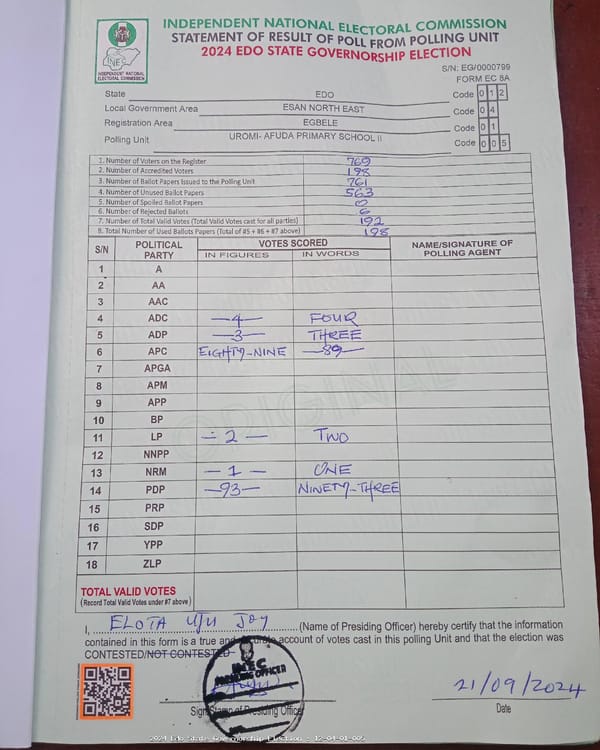 INDEPENDENT NATIONAL ELECTORAL COMMISSION
STATEMENT OF RESULT OF POLL FROM POLLING UNIT
2024 EDO STATE GOVERNORSHIP ELECTION
INEC
INDEPENDENT NATIONAL
ELECTORAL COMMISSION
S/N: EG/0000799
FORM EC 8A
State EDO Code 0 1 2
Local Government Area ESAN NORTH EAST Code 0 4
Registration Area EGBELE Code 0 1
Polling Unit UROMI- AFUDA PRIMARY SCHOOL II Code 0 0 5
1. Number of Voters on the Register 769
2. Number of Accredited Voters 198
3. Number of Ballot Papers Issued to the Polling Unit 761
4. Number of Unused Ballot Papers 563
5. Number of Spoiled Ballot Papers 0
6. Number of Rejected Ballots 6
7. Number of Total Valid Votes (Total Valid Votes cast for all parties) 192
8. Total Number of Used Ballots Papers (Total of #5 + #6 + #7 above) 198
S/N POLITICAL PARTY VOTES SCORED NAME/SIGNATURE OF POLLING AGENT
IN FIGURES IN WORDS
1 A
2 AA
3 AAC
4 ADC —4— FOUR
5 ADP —3— THREE
6 APC EIGHTY-NINE —89—
7 APGA
8 APM
9 APP
10 BP
11 LP —2— TWO
12 NNPP
13 NRM —1— ONE
14 PDP —93— NINETY-THREE
15 PRP
16 SDP
17 YPP
18 ZLP
ORIGINAL
TOTAL VALID VOTES
(Record Total Valid Votes under #7 above)
I, ELOTA UJU JOY (Name of Presiding Officer) hereby certify that the information
contained in this form is a true and accurate account of votes cast in this polling Unit and that the election was
CONTESTED/NOT CONTESTED
INEC
PRESIDING OFFICER
21/09/2024
Sign/Stamp of Presiding Officer Date
2024 Edo State Governorship Election - 12-04-01-005